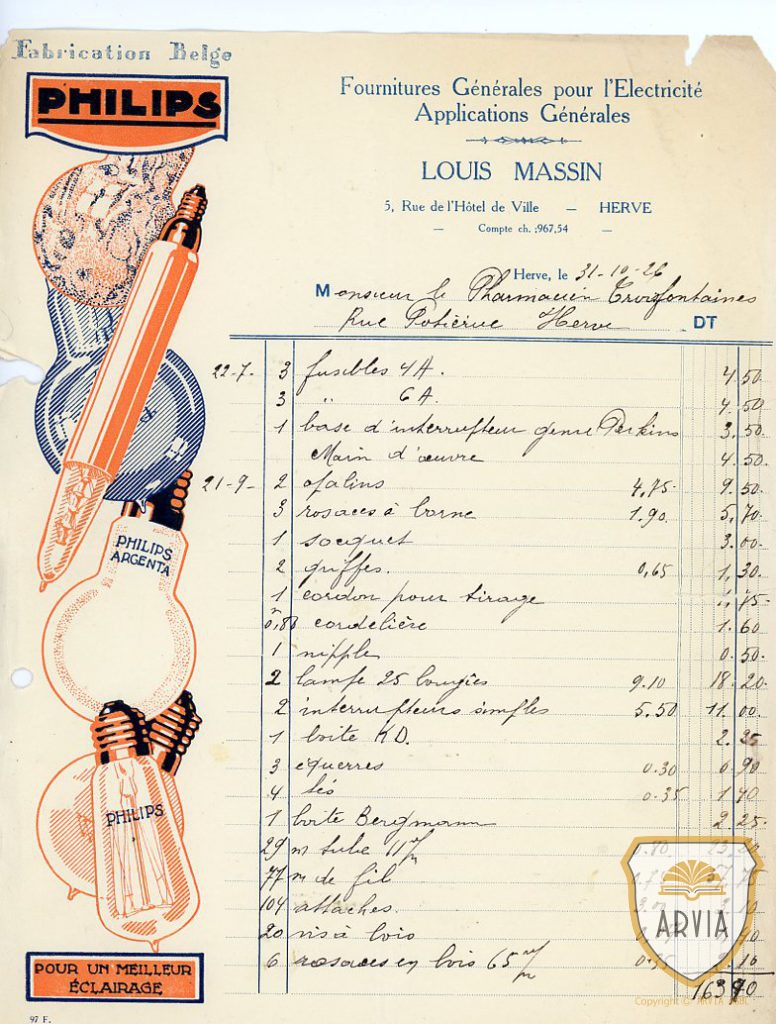 Fabrication Belge
PHILIPS
Fournitures Générales pour l'Electricité
Applications Générales
LOUIS MASSIN
5, Rue de l'Hôtel de Ville — HERVE
— Compte ch. :967,54 —
Herve, le 31-10-26
Monsieur le Pharmacien Croixfontaines
Rue Potiérue Herve DT
22-7. 3 fusibles 4A. 4.50
3 " 6A. 4.50
1 base d'interrupteur genre Perkins 3.50
Main d'œuvre 4.50
21-9. 2 opalins 4,75 9.50
3 rosaces à borne 1.90 5.70
1 socquet 3.00
2 griffes. 0,65 1,30
1 cordon pour tirage 75
0,80 cordelière 1.60
1 nipple 0.50
2 lampe 25 bougies 9.10 18.20
2 interrupteurs simples 5.50 11.00
1 boite KD. 2.25
3 equerres 0.30 0.90
4 tés 0.35 1.40
1 boite Bergmann 2.25
29 m tube 11 m/m
77 m de fil
104 attaches.
20 vis à bois
6 rosaces en bois 65 m/m 0.35 2.10
PHILIPS
ARGENTA
PHILIPS
POUR UN MEILLEUR
ÉCLAIRAGE
97 F.
ARVIA
Copyright © ARVIA ASBL